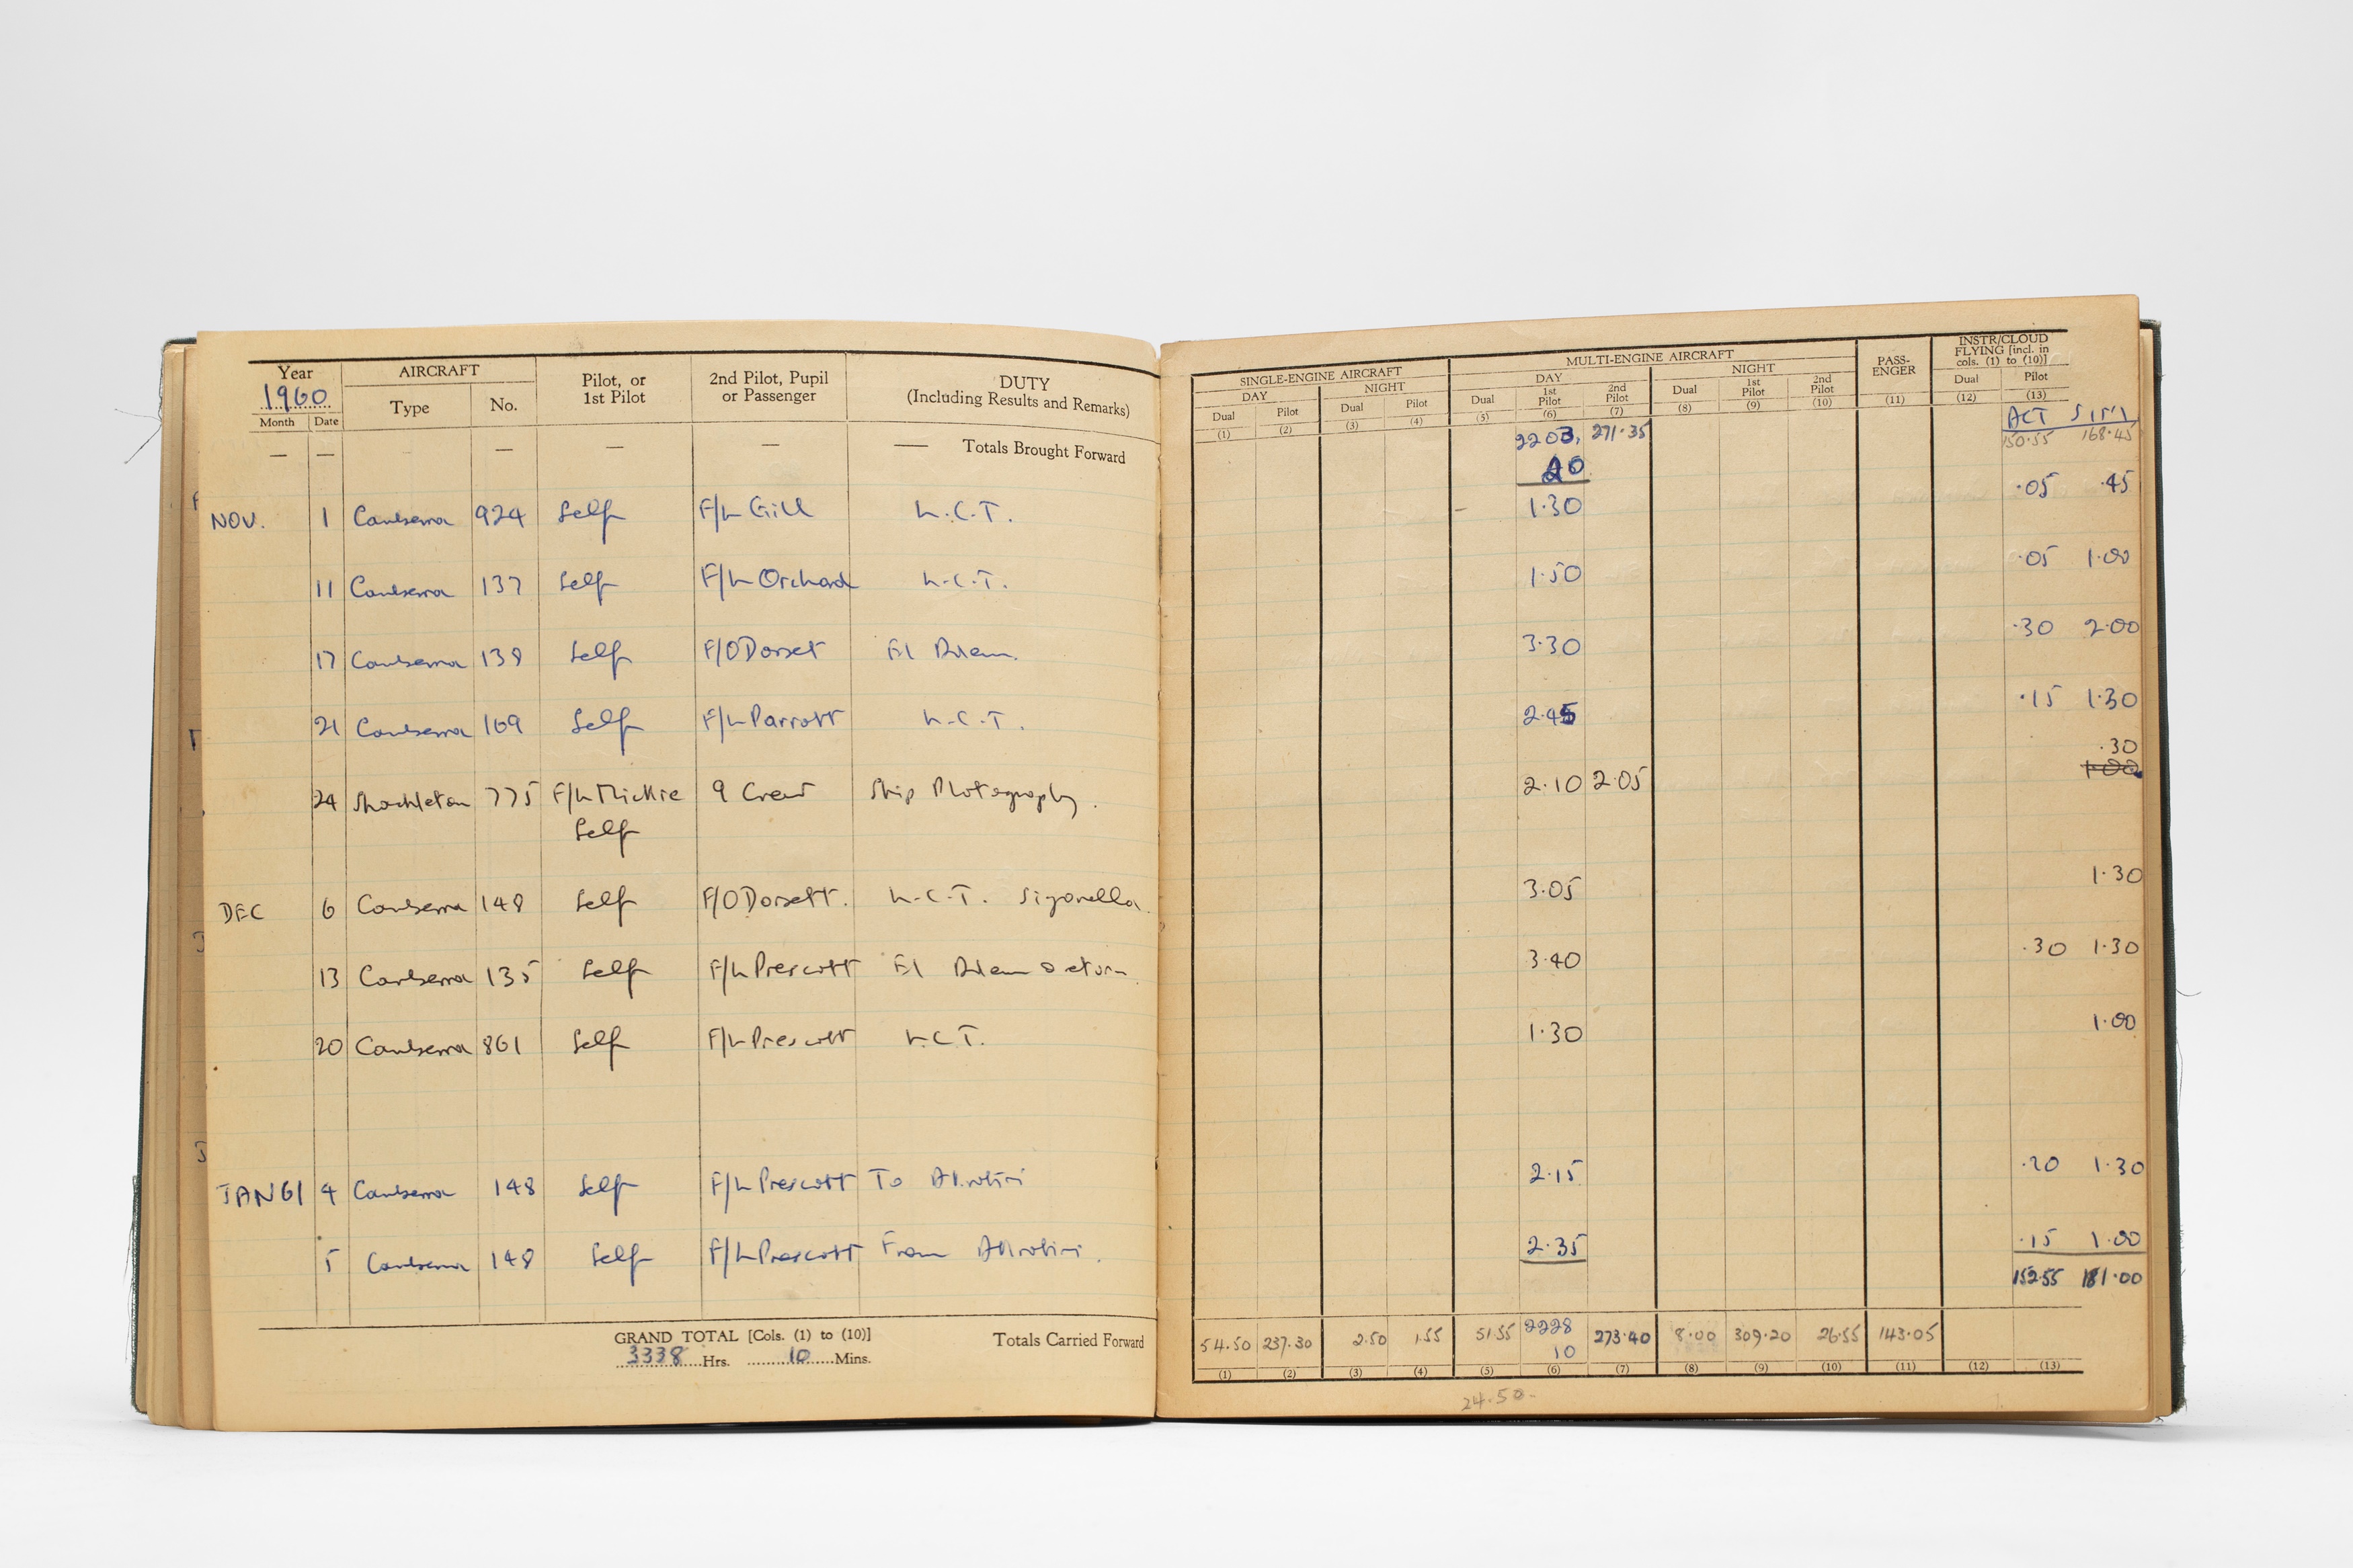 Year AIRCRAFT Pilot, or 1st Pilot 2nd Pilot, Pupil or Passenger DUTY (Including Results and Remarks)
1960
Month Date Type No.
— — — — — — Totals Brought Forward
NOV. 1 Canberra 924 Self F/L Gill L.C.T.
11 Canberra 137 Self F/L Orchard L.C.T.
17 Canberra 138 Self F/O Dorset El Adem.
21 Canberra 169 Self F/L Parrott L.C.T.
24 Shackleton 775 F/L Mickie 9 Crew Ship Photography.
Self
DEC 6 Canberra 148 Self F/O Dorsett. L.C.T. Sigonella.
13 Canberra 135 Self F/L Prescott El Adem return
20 Canberra 861 Self F/L Prescott L.C.T.
JAN 61 4 Canberra 148 Self F/L Prescott To Akrotiri
5 Canberra 148 Self F/L Prescott From Akrotiri.
GRAND TOTAL [Cols. (1) to (10)] Totals Carried Forward
3338 Hrs. 10 Mins.
SINGLE-ENGINE AIRCRAFT MULTI-ENGINE AIRCRAFT PASS-ENGER INSTR/CLOUD FLYING [incl. in cols. (1) to (10)]
DAY NIGHT DAY NIGHT
Dual Pilot Dual Pilot Dual 1st Pilot 2nd Pilot Dual 1st Pilot 2nd Pilot Dual Pilot
(1) (2) (3) (4) (5) (6) (7) (8) (9) (10) (11) (12) (13)
ACT SIM
2203. 271.35 150.55 168.45
20
1.30 .05 .45
1.50 .05 1.00
3.30 .30 2.00
2.45 .15 1.30
.30
2.10 2.05 1.00
3.05 1.30
3.40 .30 1.30
1.30 1.00
2.15 .20 1.30
2.35 .15 1.00
152.55 181.00
54.50 237.30 2.50 1.55 51.55 2228 10 273.40 8.00 309.20 26.55 143.05
(1) (2) (3) (4) (5) (6) (7) (8) (9) (10) (11) (12) (13)
24.50.